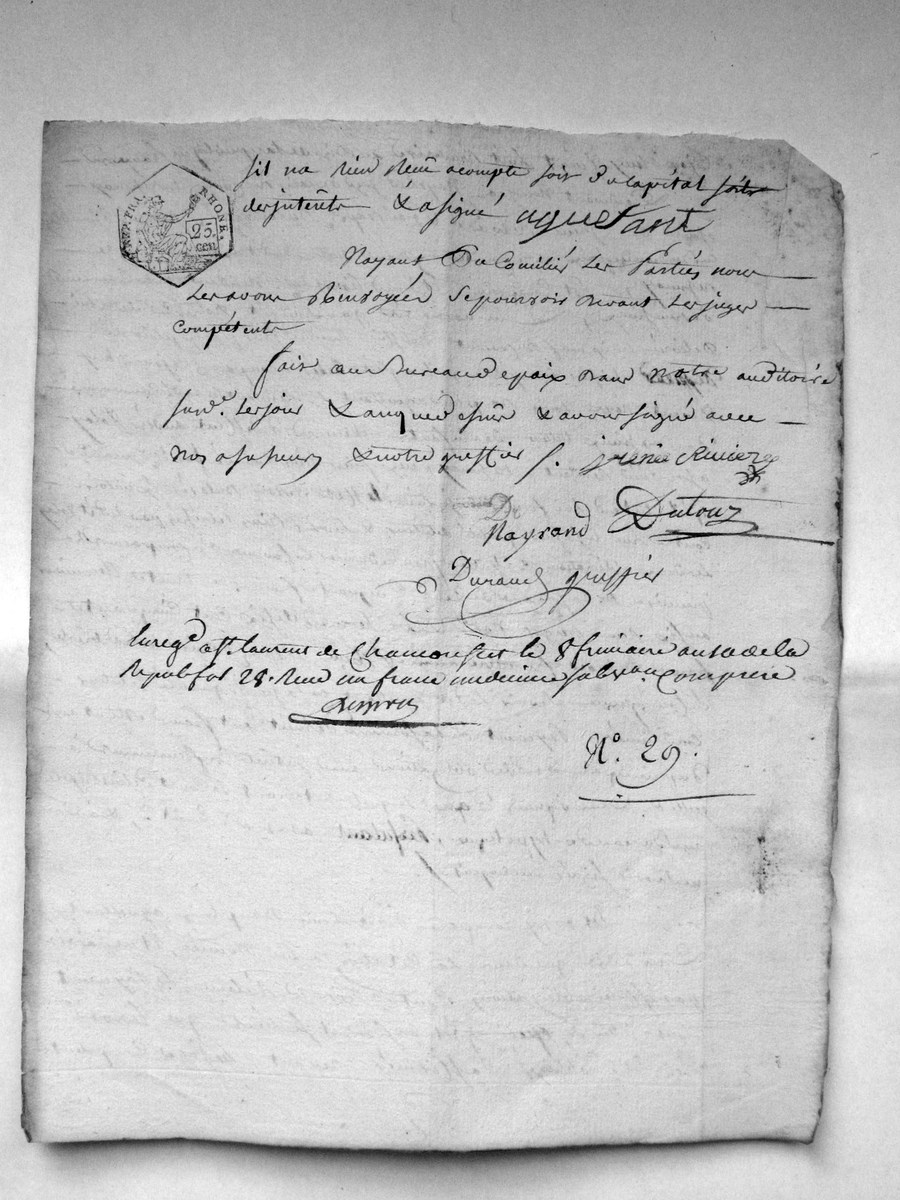 REP. FRA. RHONE.
25. cen
sil na rien Reçu acompte soit du Capital soit
des intérêts & a signé aguettant
Nayant Pu Concilier Les Parties nous
Les avons Renvoyées Se pourvoir devant Les juges
Compétents
fait au Bureau de paix dans Notre auditoire
susd. Les jour & an que dessus & avons signé avec
Nos assesseurs & notre greffier
Nayrand Dutour
Durand greffier
Enreg.é a St. Laurent de Chamousset le 8 frimaire an 10 de la
Repub f.o 28. Recu un franc un decime Subvon. Comprise
N.o 29.